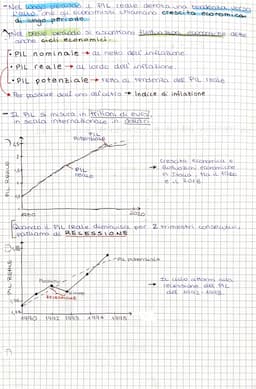 • Nel lungo periodo il PIL reale denota una tendenza verso
l'alto che gli economisti chiamano crescita economica
di lungo periodo.
Nel breve periodo si riscontrano fluttuazioni economiche dette
anche cicli economici.
• PIL nominale → al netto dell'inflazione.
• PIL reale → al lordo dell'inflazione.
• PIL potenziale → retta di tendenza del PIL reale
• Per passare dall'uno all'altro → indice di inflazione
• Il PIL si misura in trilioni di euro,
in scala internazionale in dollari
PIL
POTENZIALE
PIL
REALE
PIL REALE
1980
2020
→ Crescita economica e
fluttuazioni economiche
in Italia, tra il 1980
e il 2018.
Quando il PIL reale diminuisce per 2 trimestri consecutivi
parliamo di RECESSIONE
PIL potenziale
RECESSIONE
PIL REALE
1990 1992 1993 1994 1995
→ Il ciclo attorno alla
recessione del PIL
del 1992-1993.